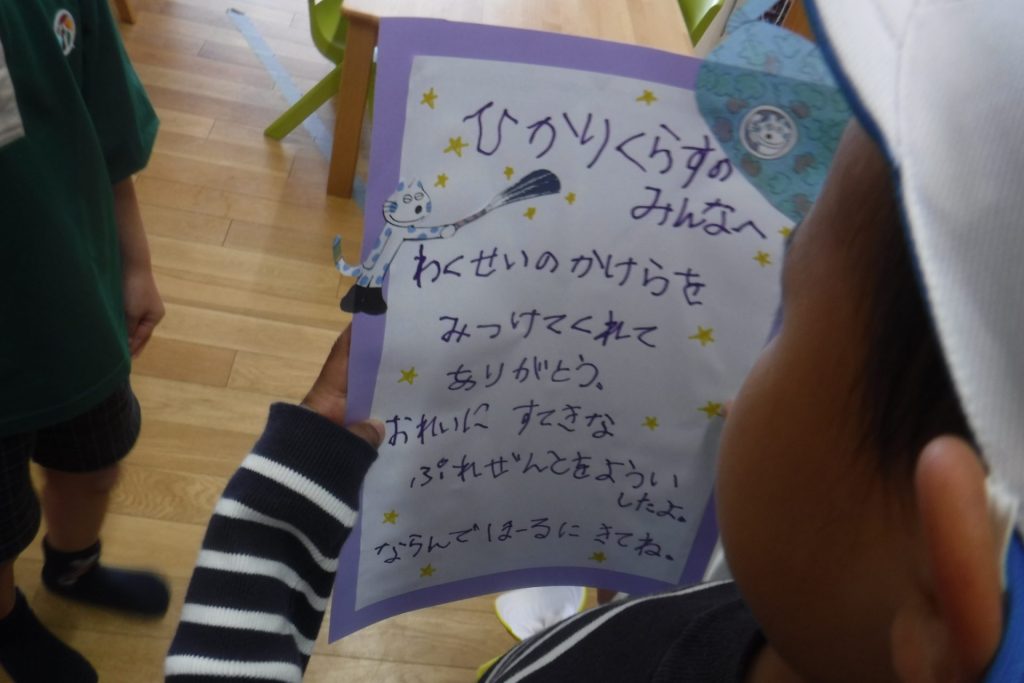 ひかりくらすの
みんなへ
わくせいのかけらを
みつけてくれて
ありがとう。
おれいに すてきな
ぷれぜんとをようい
したよ。
ならんでほーるに きてね。